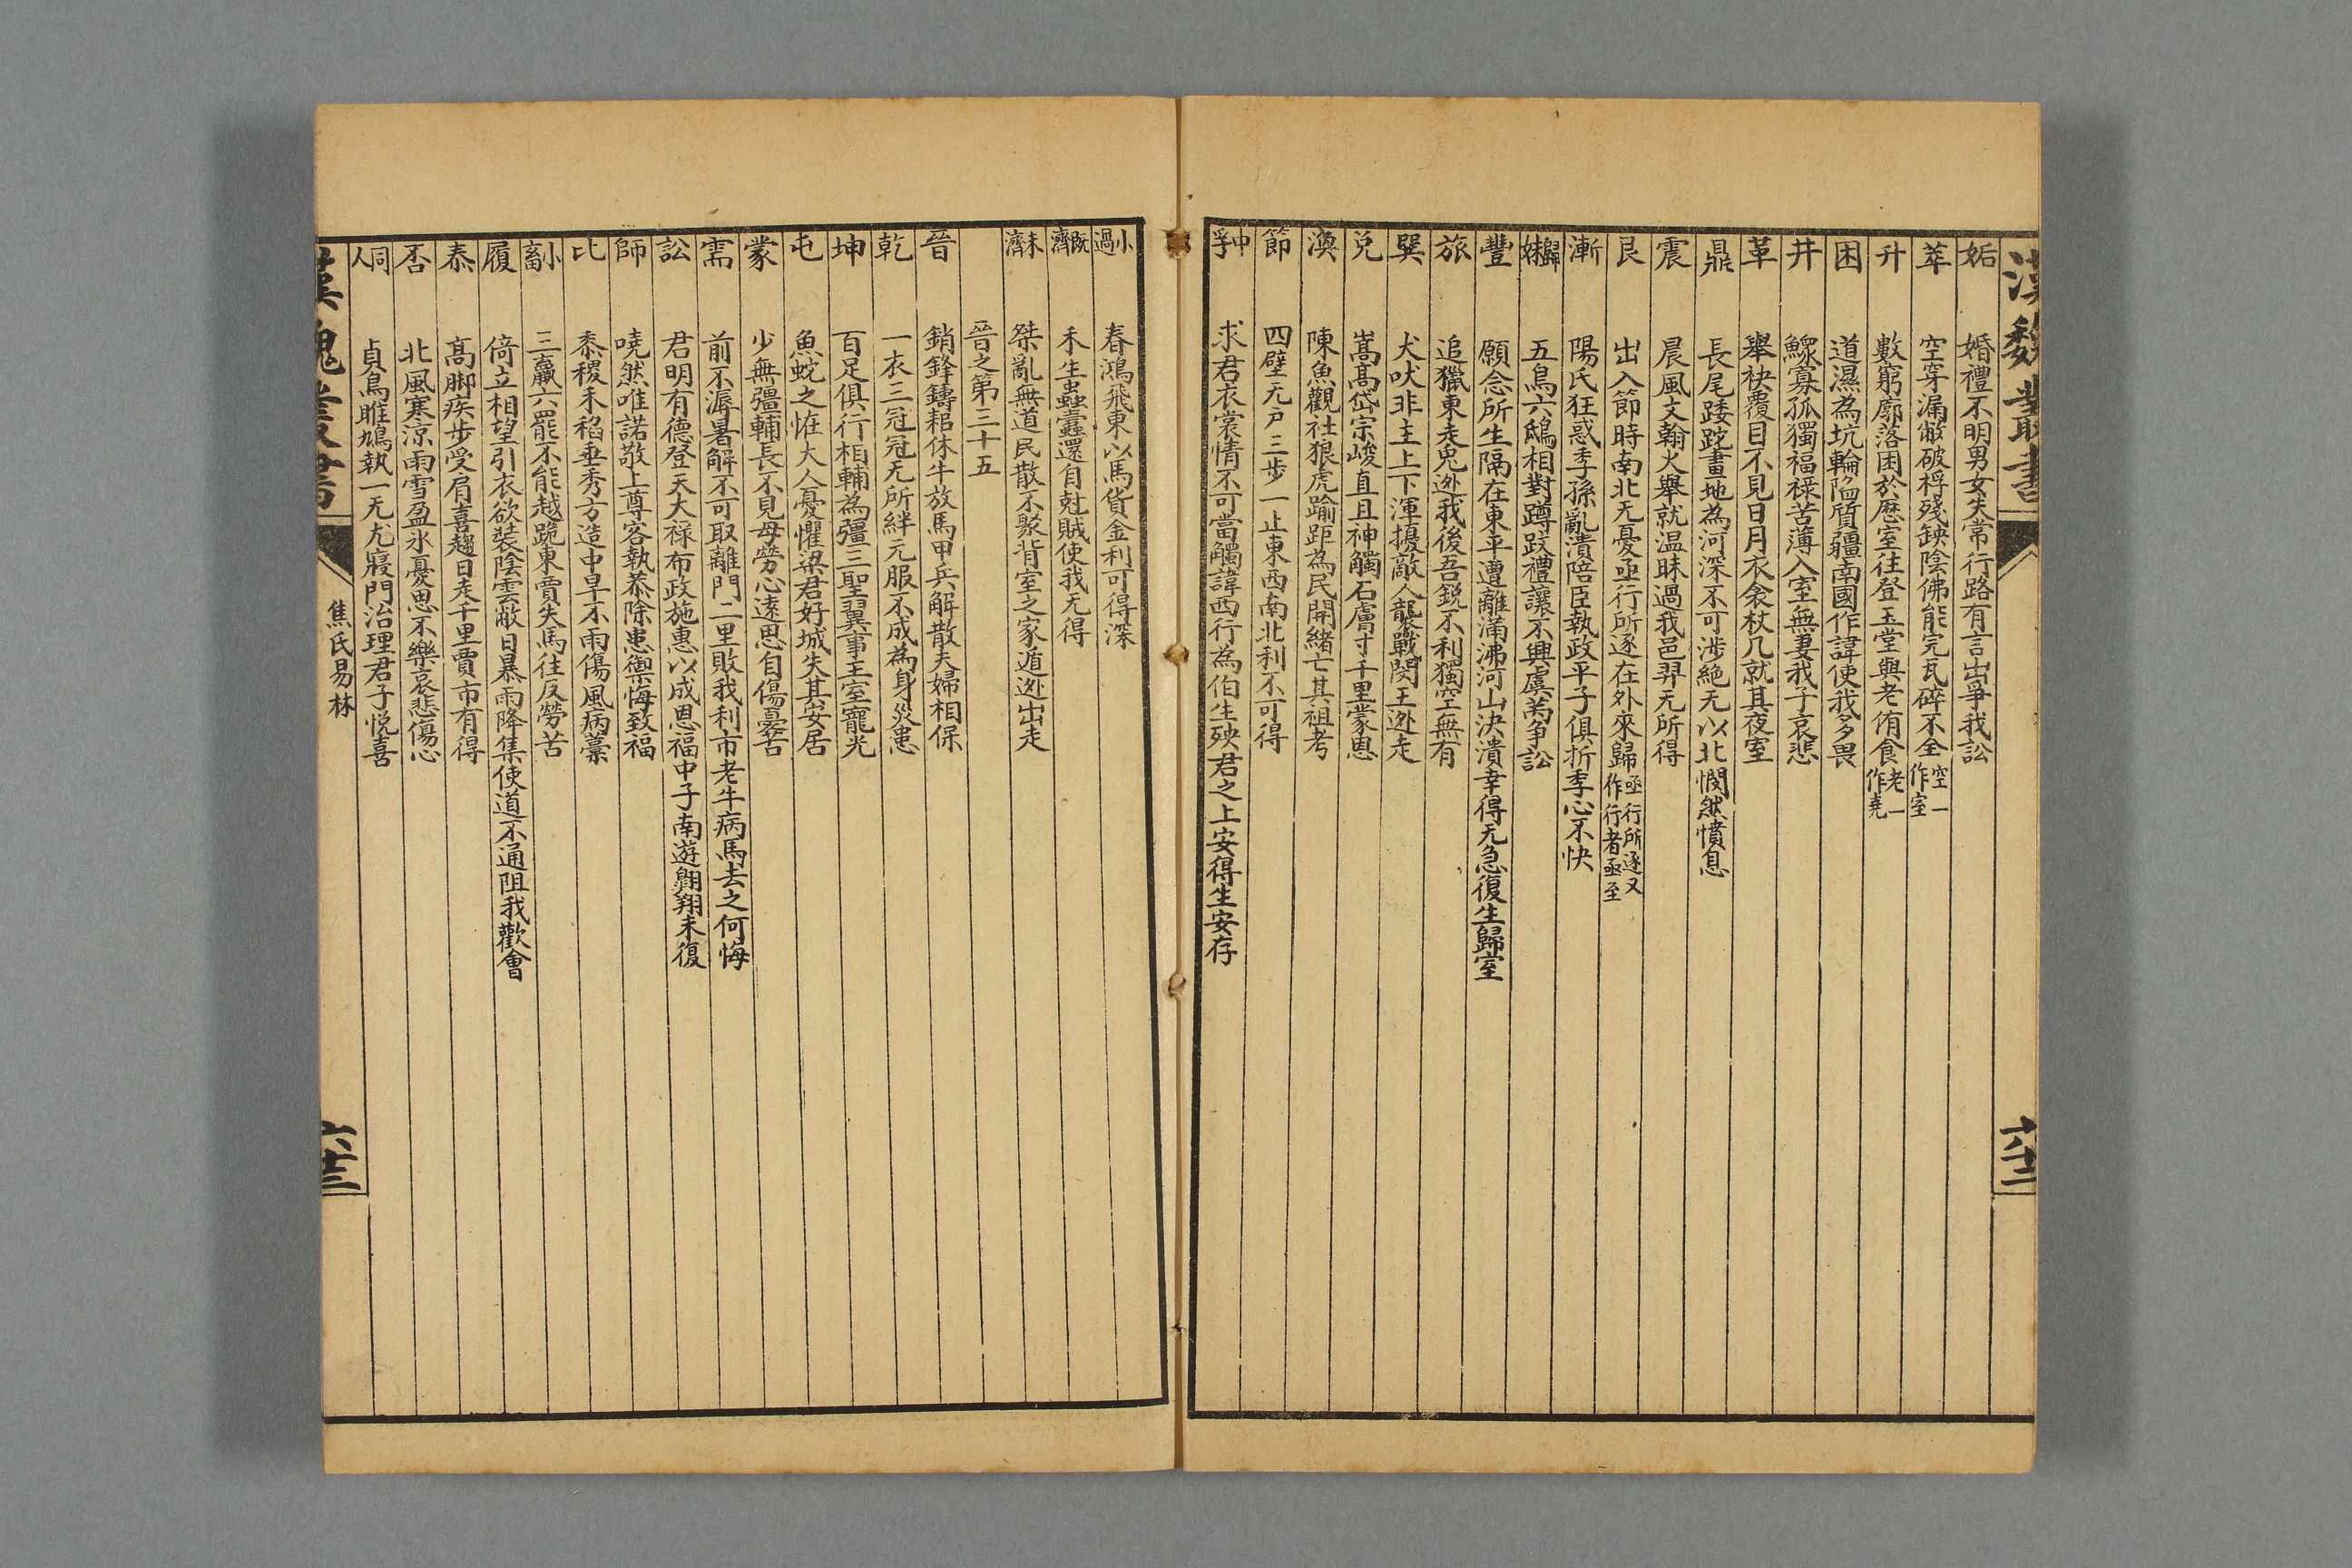 漢魏叢書
六十二
姤 婚禮不明男女失常行路有言出爭我訟
萃 空穿漏敝破桴殘缺陰佛能完瓦碎不全 空一作室
升 數窮廓落困於歷室往登玉堂與老侑食 老一作堯
困 道濕為坑輪陷質疆南國作諱使我多畏
井 鰥寡孤獨福祿苦薄入室無妻我子哀悲
革 舉袂覆目不見日月衣衾杖几就其夜室
鼎 長尾踒跎畫地為河深不可涉絕无以北憫然憤息
震 晨風文翰火舉就温昧過我邑羿无所得
艮 出入節時南北无憂亟行所逐在外來歸 亟行所逐又作行者亟至
漸 陽氏狂惑季孫亂潰陪臣執政平子俱折季心不快
歸妹 五鳥六鴟相對蹲跂禮讓不興虞芮爭訟
豐 願念所生隔在東平遭離滿沸河山決潰幸得无急復生歸室
旅 追獵東走兎逊我後吾銳不利獨空無有
巽 犬吠非主上下渾擾敵人襲戰閔王逊走
兌 嵩高岱宗峻直且神觸石膚寸千里蒙恩
渙 陳魚觀社狼虎踰距為民開緒亡其祖考
節 四壁无戸三步一止東西南北利不可得
中孚 求君衣裳情不可當觸諱西行為伯生殃君之上安得生安存
小過 春鴻飛東以馬貨金利可得深
既濟 禾生蟲蠹還自剋賊使我无得
未濟 桀亂無道民散不聚背室之家遁逊出走
晉之第三十五
晉 銷鋒鑄耜休牛放馬甲兵解散夫婦相保
乾 一衣三冠冠无所絆元服不成為身災患
坤 百足俱行相輔為彊三聖翼事王室寵光
屯 魚蛇之恠大人憂懼梁君好城失其安居
蒙 少無彊輔長不見母勞心遠思自傷憂苦
需 前不溽暑解不可取離門二里敗我利市老牛病馬去之何悔
訟 君明有德登天大祿布政施惠以成恩福中子南遊翺翔未復
師 嘵然唯諾敬上尊客執恭除患禦侮致福
比 黍稷禾稻垂秀方造中旱不雨傷風病藁
小畜 三羸六罷不能越跪東賈失馬往反勞苦
履 倚立相望引衣欲裝陰雲敝日暴雨降集使道不通阻我歡會
泰 高脚疾步受肩喜趨日走千里賈市有得
否 北風寒涼雨雪盈氷憂思不樂哀悲傷心
同人 貞鳥睢鳩執一无尤寢門治理君子悅喜
漢魏叢書
焦氏易林
六十三